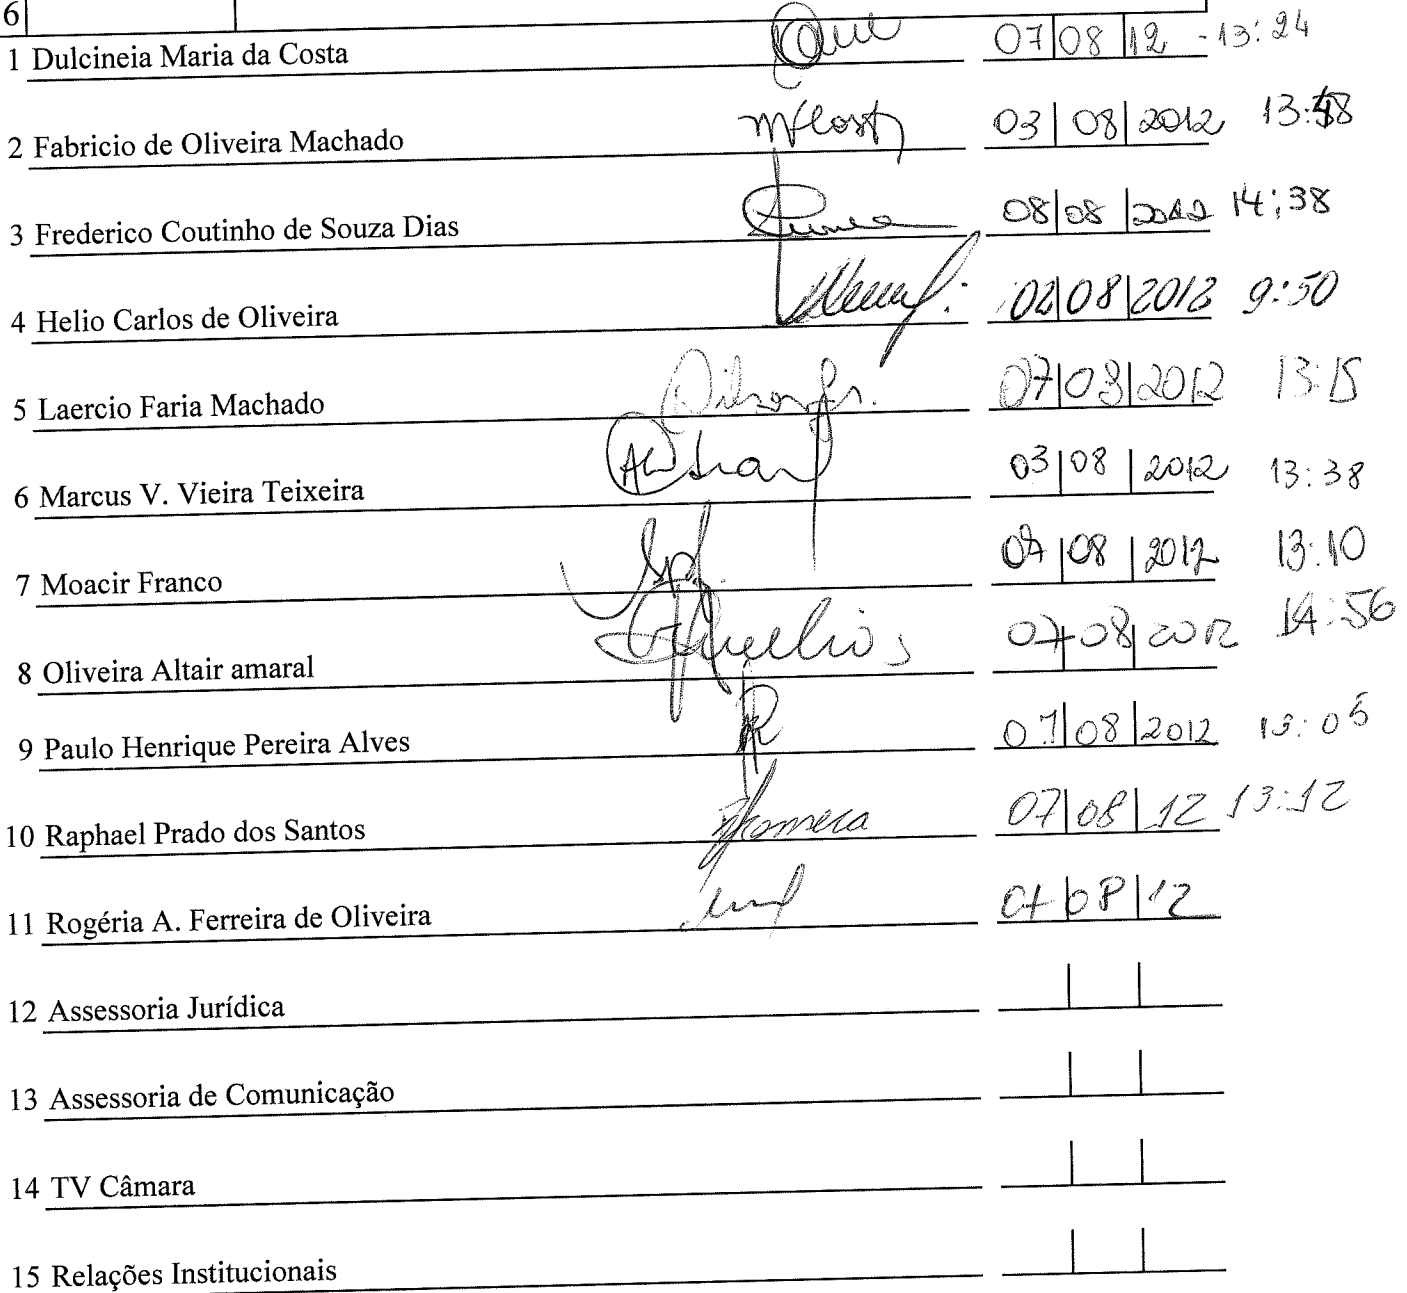 6
1 Dulcineia Maria da Costa 07/08/12 - 13:24
2 Fabricio de Oliveira Machado 03/08/2012
3 Frederico Coutinho de Souza Dias 08/08/2012 14:38
4 Helio Carlos de Oliveira 08/2012 9:50
5 Laercio Faria Machado 07/08/2012 13:15
6 Marcus V. Vieira Teixeira 03/08/2012 13:38
7 Moacir Franco 07/08/2012 13:10
8 Oliveira Altair amaral 07/08/2012 14:56
9 Paulo Henrique Pereira Alves 07/08/2012 13:05
10 Raphael Prado dos Santos 07/08/12 13:12
11 Rogéria A. Ferreira de Oliveira 07/08/12
12 Assessoria Jurídica
13 Assessoria de Comunicação
14 TV Câmara
15 Relações Institucionais